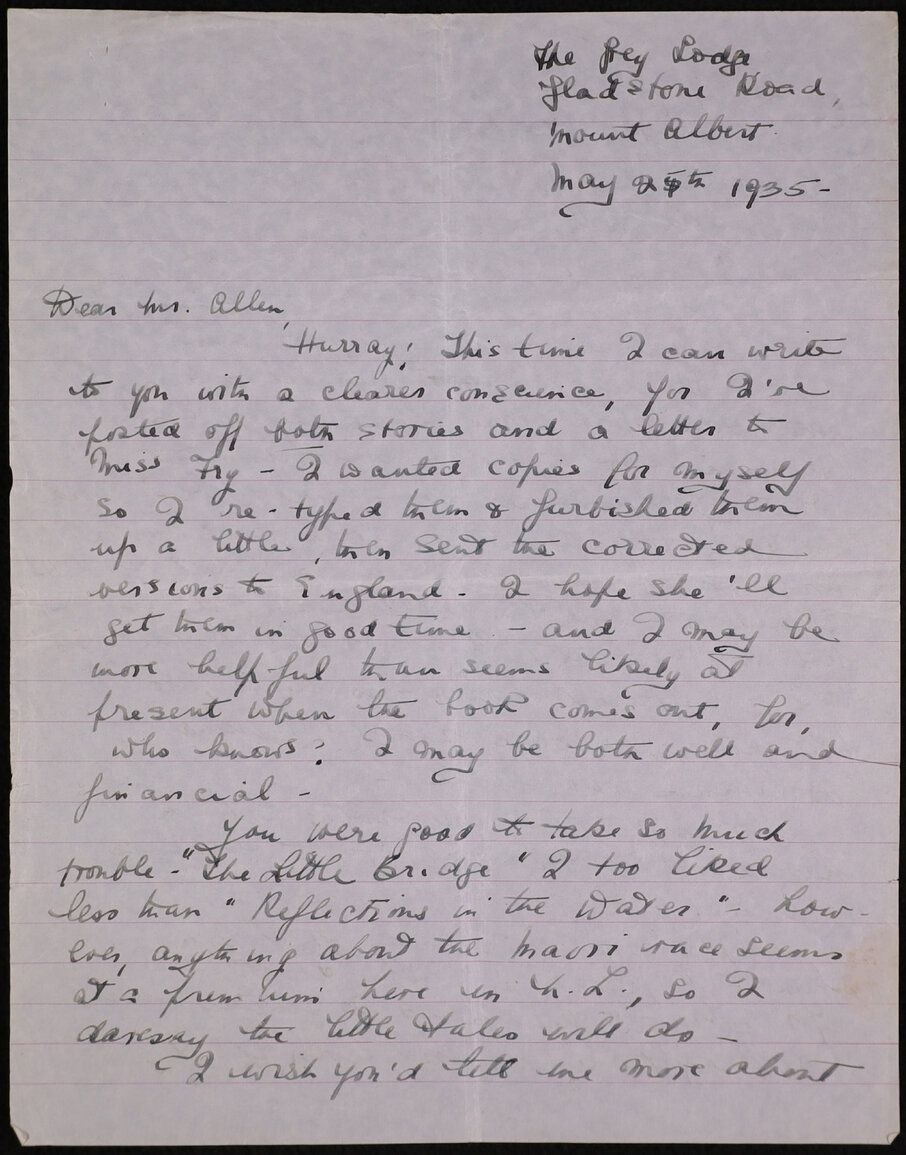 The Grey Lodge
Gladstone Road,
Mount Albert.
May 25th 1935-
Dear Mr. Allen,
Hurray! This time I can write
to you with a clearer conscience, for I've
posted off both stories and a letter to
Miss Fry - I wanted copies for myself
so I re-typed them & furbished them
up a little, then sent the corrected
versions to England - I hope she'll
get them in good time - and I may be
more helpful than seems likely at
present when the book comes out, for,
who knows? I may be both well and
financial -
You were good to take so much
trouble - "The Little Bridge" I too liked
less than "Reflections in the Water" - how-
ever, anything about the Maori race seems
at a premium here in N.Z., so I
daresay the little tales will do -
I wish you'd tell me more about